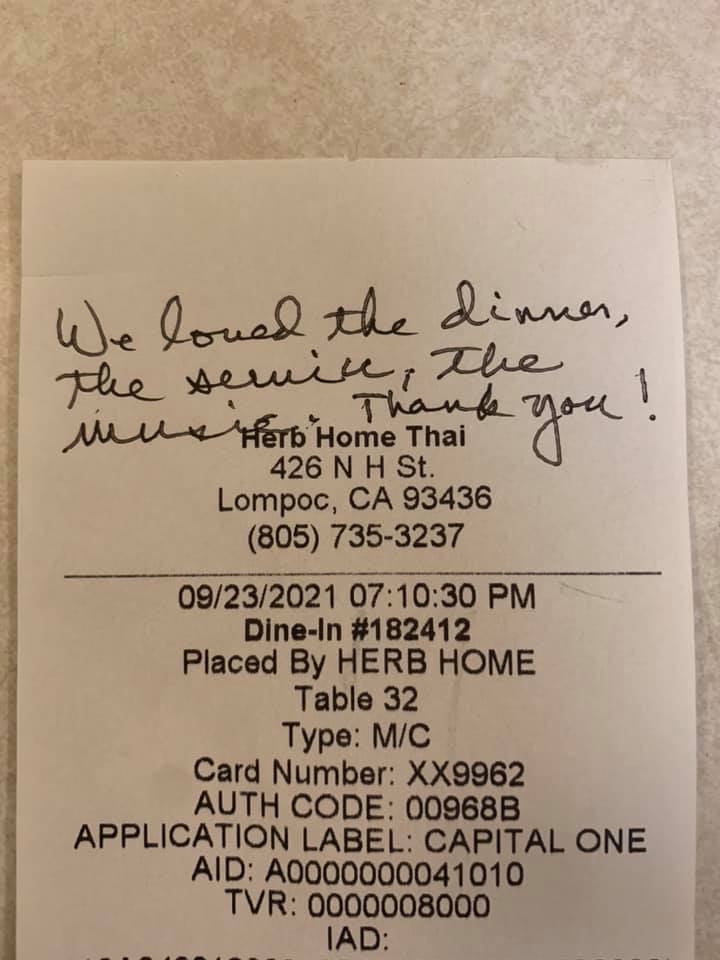 We loved the dinner,
the service, the
music. Thank you!
Herb Home Thai
426 N H St.
Lompoc, CA 93436
(805) 735-3237
09/23/2021 07:10:30 PM
Dine-In #182412
Placed By HERB HOME
Table 32
Type: M/C
Card Number: XX9962
AUTH CODE: 00968B
APPLICATION LABEL: CAPITAL ONE
AID: A0000000041010
TVR: 0000008000
IAD: